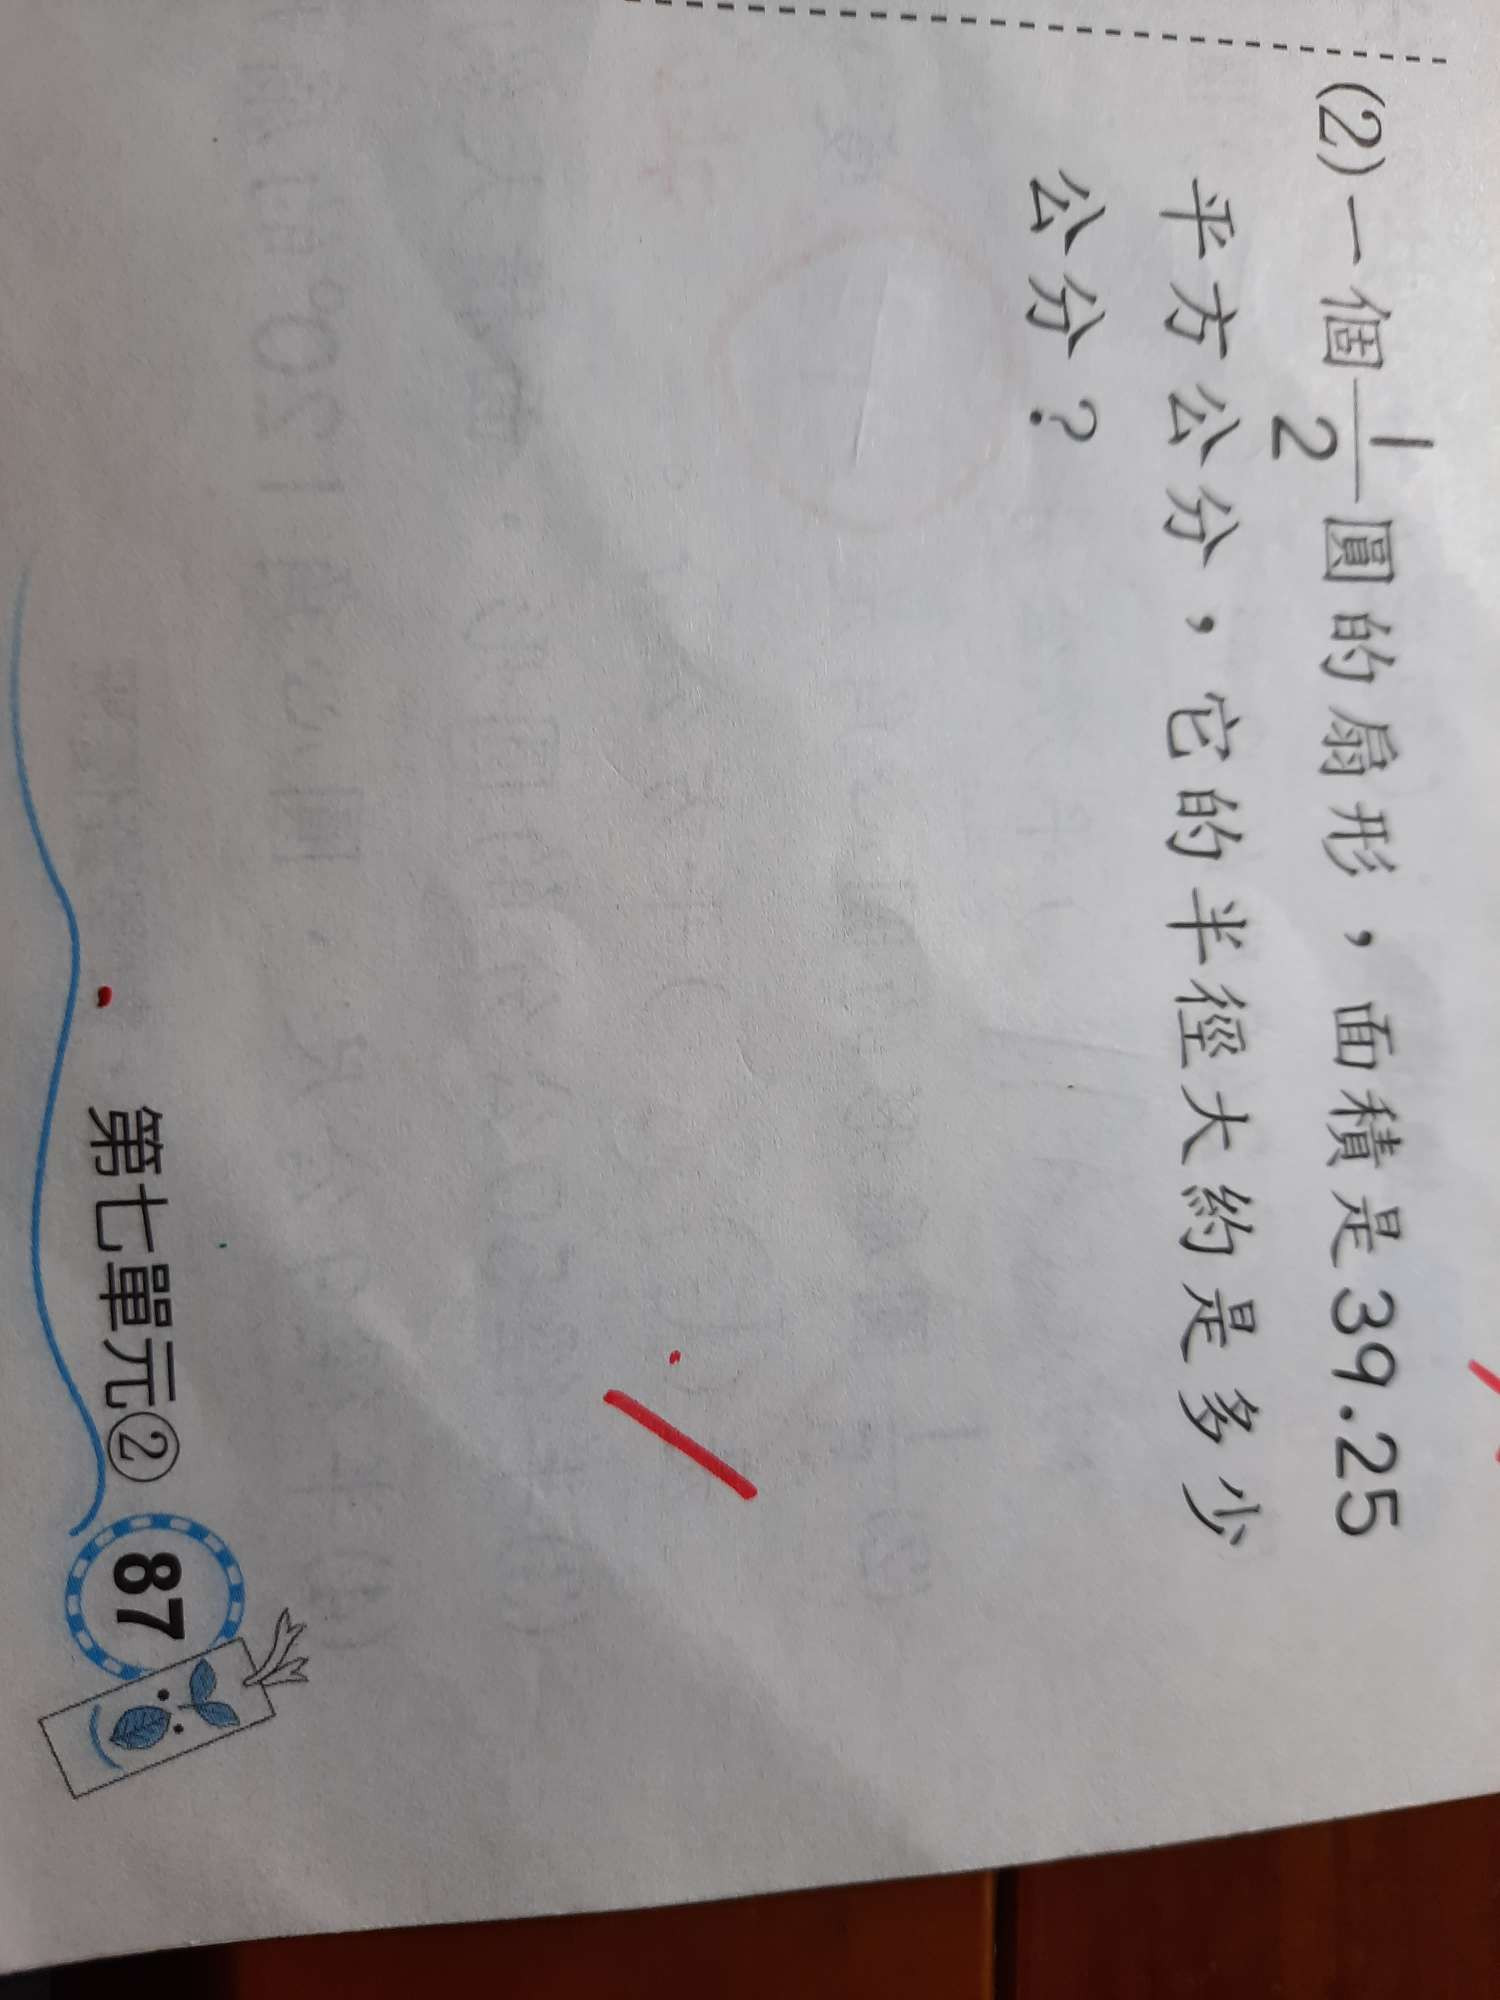 (2)一個1/2圓的扇形，面積是39.25
平方公分，它的半徑大約是多少
公分？
第七單元② 87